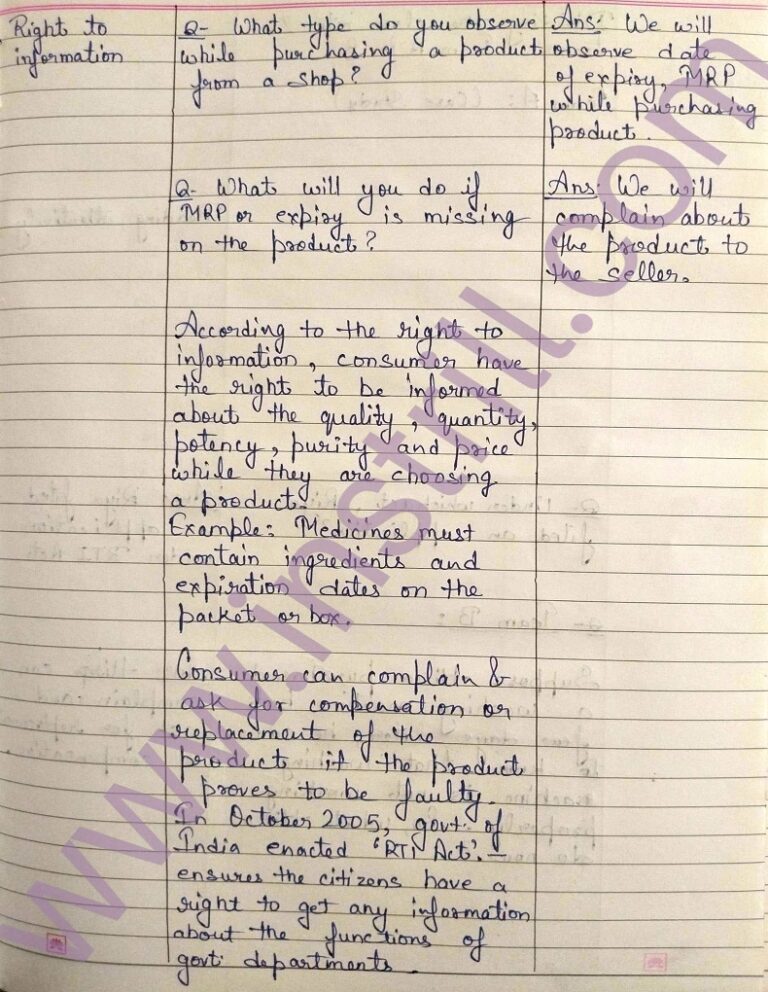 Right to
information
Q- What type do you observe
while purchasing a product
from a shop?
Ans: We will
observe date
of expiry, MRP
while purchasing
product.
Q- What will you do if
MRP or expiry is missing
on the product?
Ans: We will
complain about
the product to
the seller.
According to the right to
information, consumer have
the right to be informed
about the quality, quantity,
potency, purity and price
while they are choosing
a product.
Example: Medicines must
contain ingredients and
expiration dates on the
packet or box.
Consumer can complain &
ask for compensation or
replacement of the
products if the product
proves to be faulty.
In October 2005, govt. of
India enacted 'RTI Act'. —
ensures the citizens have a
right to get any information
about the functions of
govt. departments.
www.instrill.com